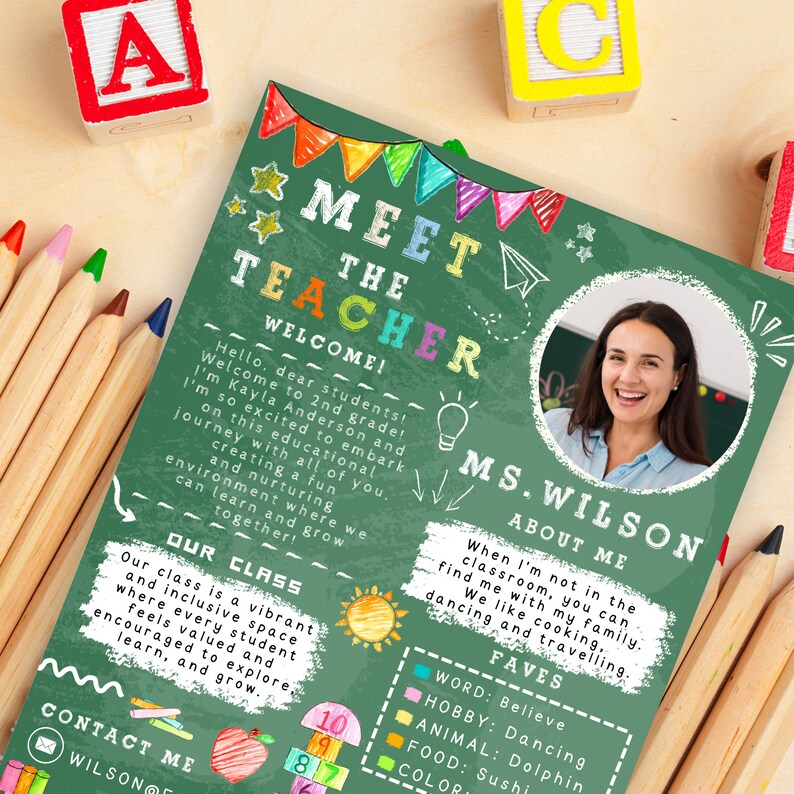 A
C
MEET
THE
TEACHER
WELCOME!
Hello, dear students!
Welcome to 2nd grade!
I'm Kayla Anderson and
I'm so excited to embark
on this educational
journey with all of you,
creating a fun
and nurturing
environment where we
can learn and grow
together!
MS. WILSON
ABOUT ME
When I'm not in the
classroom, you can
find me with my family.
We like cooking,
dancing and travelling.
OUR CLASS
Our class is a vibrant
and inclusive space
where every student
feels valued and
encouraged to explore,
learn, and grow.
FAVES
WORD: Believe
HOBBY: Dancing
ANIMAL: Dolphin
FOOD: Sushi
COLOR:
CONTACT ME
10
9
8 7
6